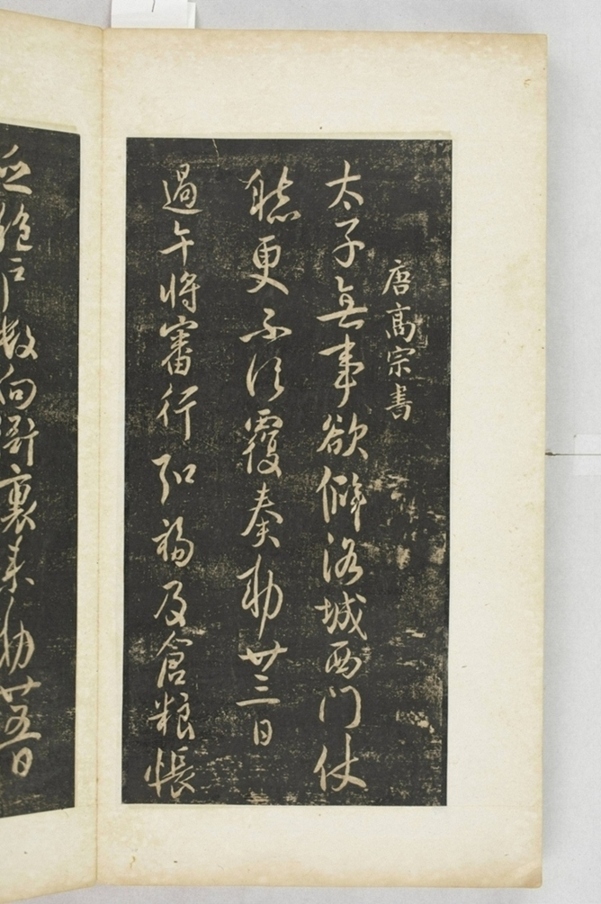 唐高宗書
太子無事欲脩洛城西門仗
聽更不須覆奏勅卅三日
過午將審行弘福及倉粮帳
數向衙裏來勅廿五日